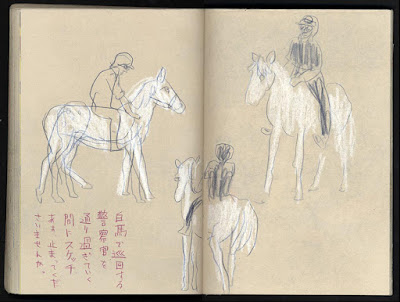 白馬で巡回する
警察官を
通り過ぎていく
間にスケッチ
あまり止まってくだ
さいませんね。